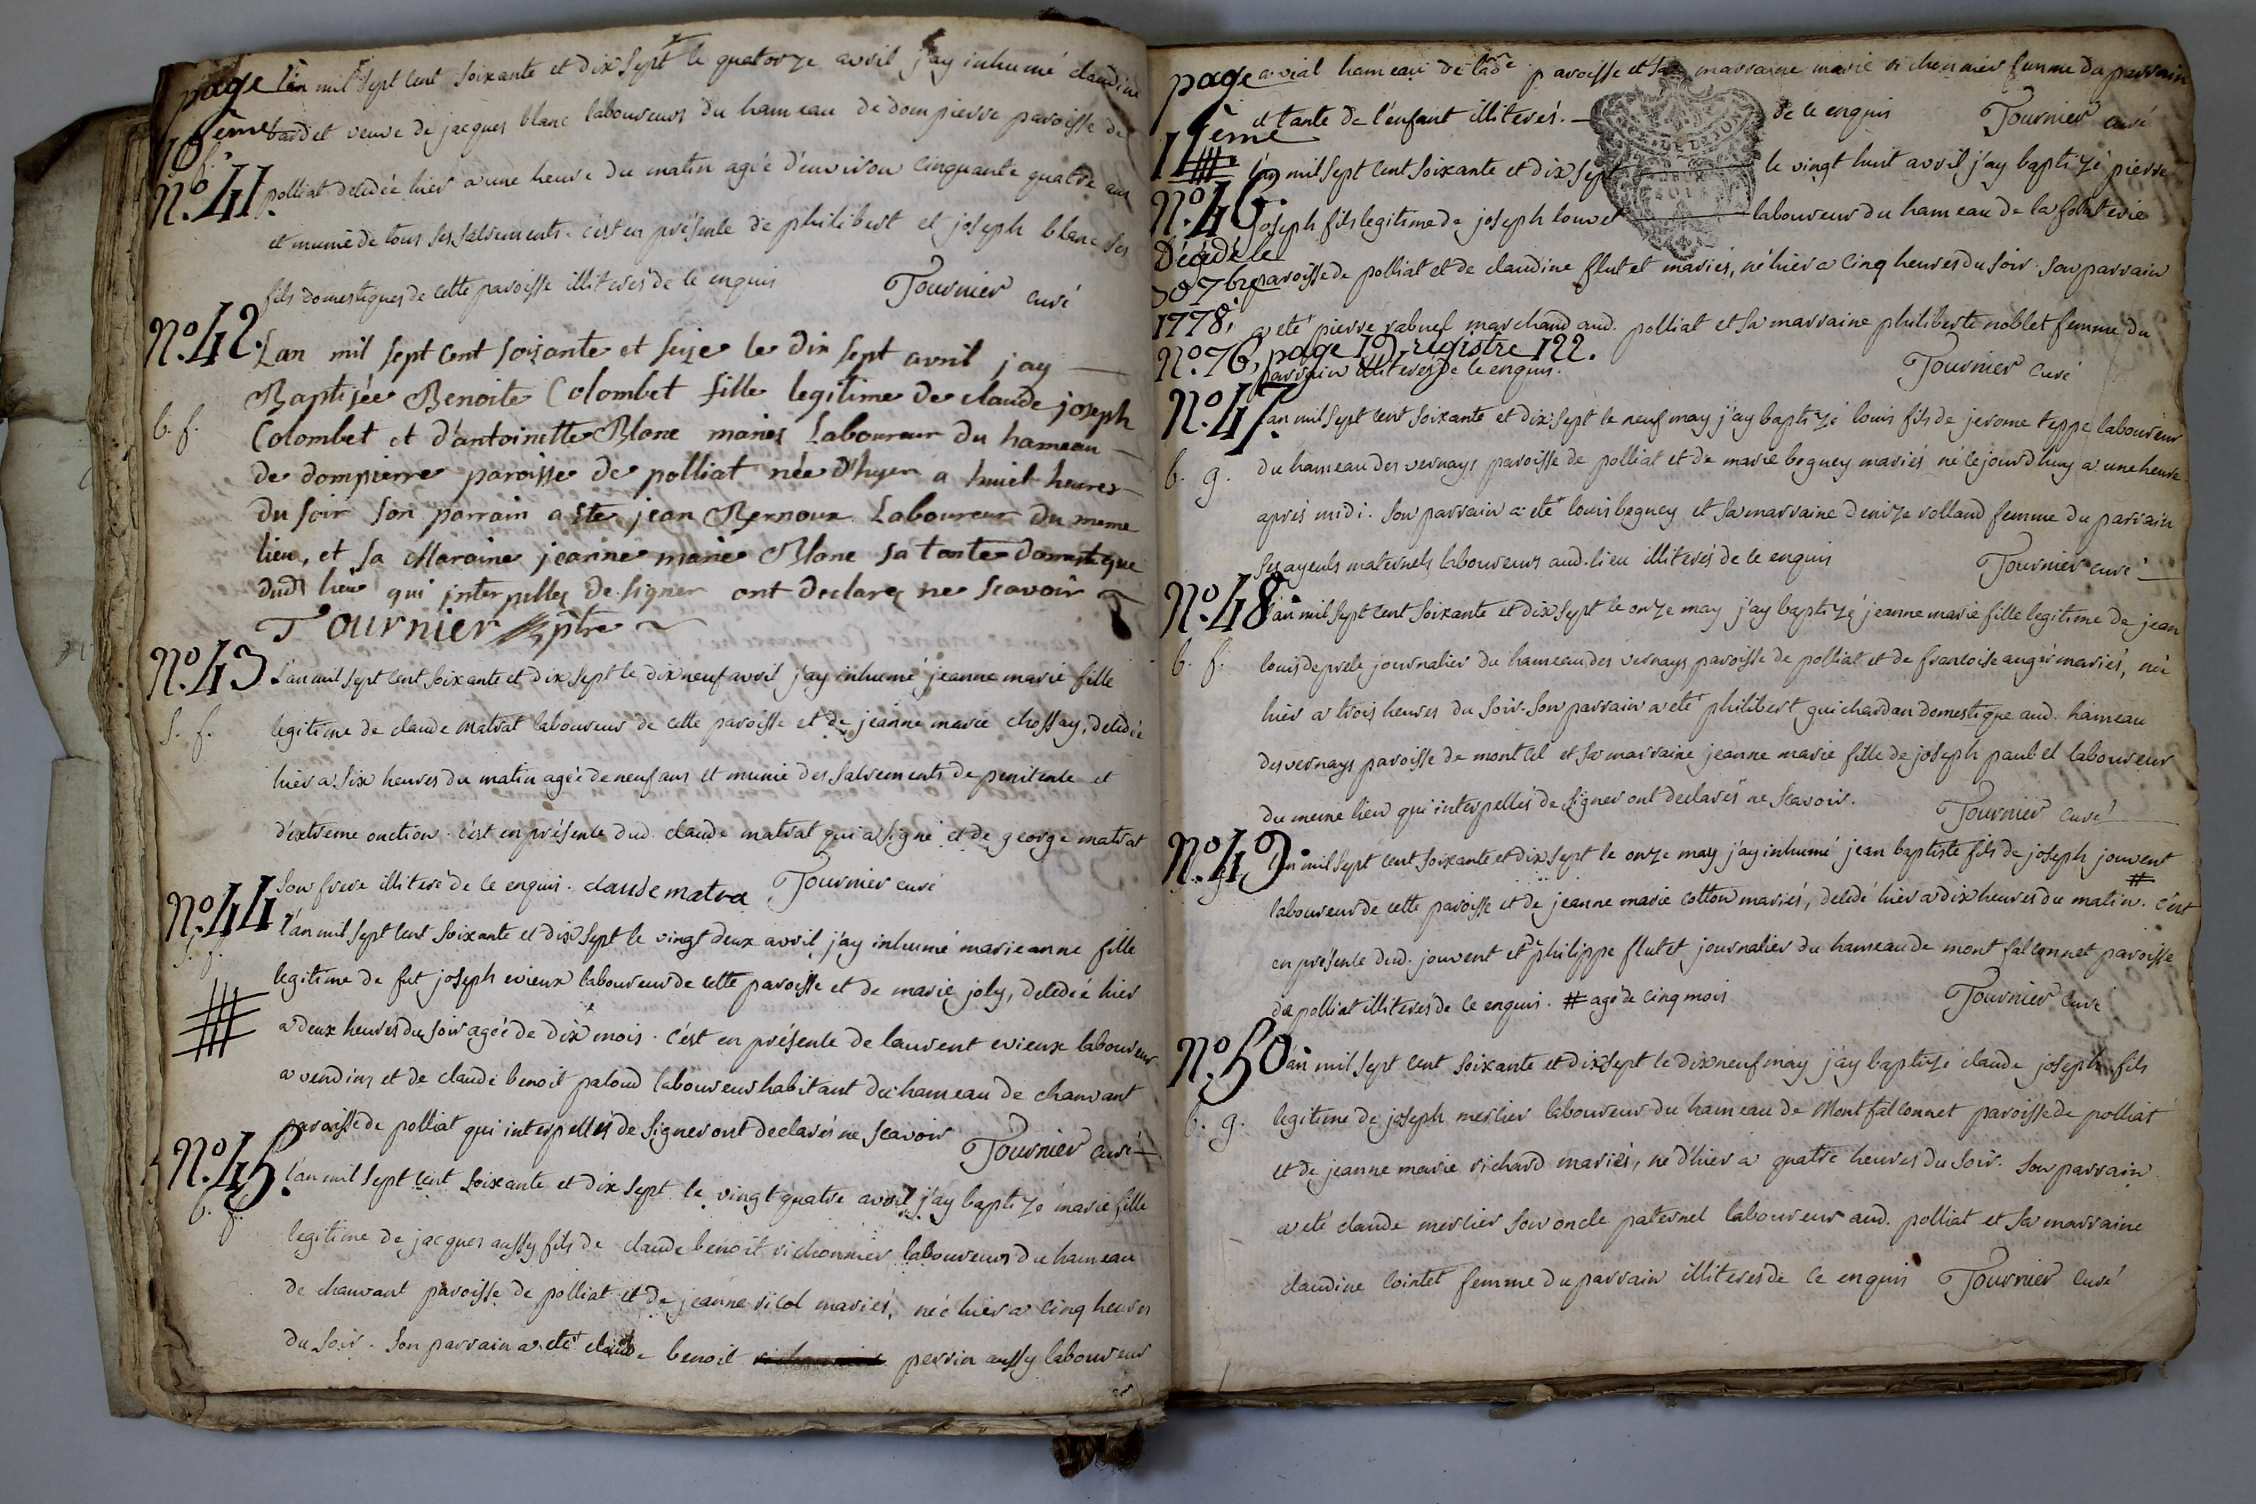 page 10ême
l'an mil sept cent soixante et dix sept le quatorze avril j'ay inhumé claudine
bardet veuve de jacques blanc laboureurs du hameau de dompierre paroisse de
No. 41.
polliat decedée hier a une heure du matin agée d'environ cinquante quatre ans
et munie de tous ses sacrements. c'est en présence de philibert et joseph blanc ses
fils domestiques de cette paroisse illiterés de ce enquis Tournier curé
No. 42.
Lan mil sept cent soixante et seize le dix sept avril jay
b. f.
Baptisée Benoite Colombet fille legitime de claude joseph
Colombet et d'antoinette Blanc mariés Laboureur du hameau
de dompierre paroisse de polliat née d'hyer a huict heures
du soir son parrain a ete jean Bernoux Laboureur du meme
lieu, et sa Maraine jeanne marie Blanc sa tante domestique
dudt lieu qui interpellez de signer ont declarez ne scavoir
Tournier ptre
No. 43
L'an mil sept cent soixante et dix sept le dix neuf avril j'ay inhumé jeanne marie fille
s. f.
legitime de claude matrat laboureur de cette paroisse et de jeanne marie chossay, decedée
hier a six heures du matin agée de neuf ans et munie des sacrements de penitence et
d'extreme onction. c'est en présence dud. claude matrat qui a signé et de george matrat
son frere illiteré de ce enquis. claude matra Tournier curé
No. 44
l'an mil sept cent soixante et dix sept le vingt deux avril j'ay inhumé marie anne fille
s. f.
legitime de fut joseph evieux laboureur de cette paroisse et de marie joly, decedée hier
a deux heures du soir agée de dix mois. c'est en présence de laurent evieux laboureur
a vendins et de claude benoit paloud laboureur habitant du hameau de chanvant
paroisse de polliat qui interpellés de signer ont declarés ne scavoir Tournier curé
No. 45.
l'an mil sept cent soixante et dix sept le vingt quatre avril j'ay baptizé marie fille
b. f.
legitime de jacques aussy fils de claude benoit richonnier laboureurs du hameau
de chanvant paroisse de polliat et de jeanne ricol mariés, née hier a cinq heures
du soir. son parrain a eté claude benoit perrin aussy laboureur
page 11ême
a vial hameau de lade paroisse et sa marraine marie richonnier femme du parrain
et tante de l'enfant illiterés. de ce enquis Tournier curé
No. 46.
l'an mil sept cent soixante et dix sept le vingt huit avril j'ay baptizé pierre
joseph fils legitime de joseph louvet laboureur du hameau de la
Décédé le
30 7bre
paroisse de polliat et de claudine flutet mariés, né hier a cinq heures du soir. son parrain
1778,
a eté pierre rabuel marchand aud. polliat et sa marraine philiberte noblet femme du
No. 76, page 19, registre 122.
parrain illiterés de ce enquis. Tournier curé
No. 47.
l'an mil sept cent soixante et dix sept le neuf may j'ay baptizé louis fils de jerome teppe laboureur
b. g.
du hameau des vernays paroisse de polliat et de marie beguey mariés né cejourd'huy a une heure
après midi. son parrain a eté louis beguey et sa marraine denize rolland femme du parrain
ses ayeuls maternels laboureurs aud. lieu illiterés de ce enquis Tournier curé
No. 48.
l'an mil sept cent soixante et dix sept le onze may j'ay baptizé jeanne marie fille legitime de jean
b. f.
louis deprele journalier du hameau des vernays paroisse de polliat et de francoise auger mariés, née
hier a trois heures du soir. son parrain a eté philibert guichardan domestique aud. hameau
des vernays paroisse de montcel et sa marraine jeanne marie fille de joseph paubel laboureur
du meme lieu qui interpellés de signer ont declarés ne scavoir. Tournier curé
No. 49.
l'an mil sept cent soixante et dix sept le onze may j'ay inhumé jean baptiste fils de joseph jouvent
laboureur de cette paroisse et de jeanne marie cotton mariés, decedé hier a dix heures du matin. # c'est
en présence dud. jouvent et de philippe flutet journalier du hameau de mont falconnet paroisse
de polliat illiterés de ce enquis. # agé de cinq mois Tournier curé
No. 50.
l'an mil sept cent soixante et dix sept le dix neuf may j'ay baptizé claude joseph fils
b. g.
legitime de joseph merlier laboureur du hameau de Montfalconnet paroisse de polliat
et de jeanne marie richard mariés, né d'hier a quatre heures du soir. son parrain
a eté claude merlier son oncle paternel laboureur aud. polliat et sa marraine
claudine cointet femme du parrain illiterés de ce enquis Tournier curé